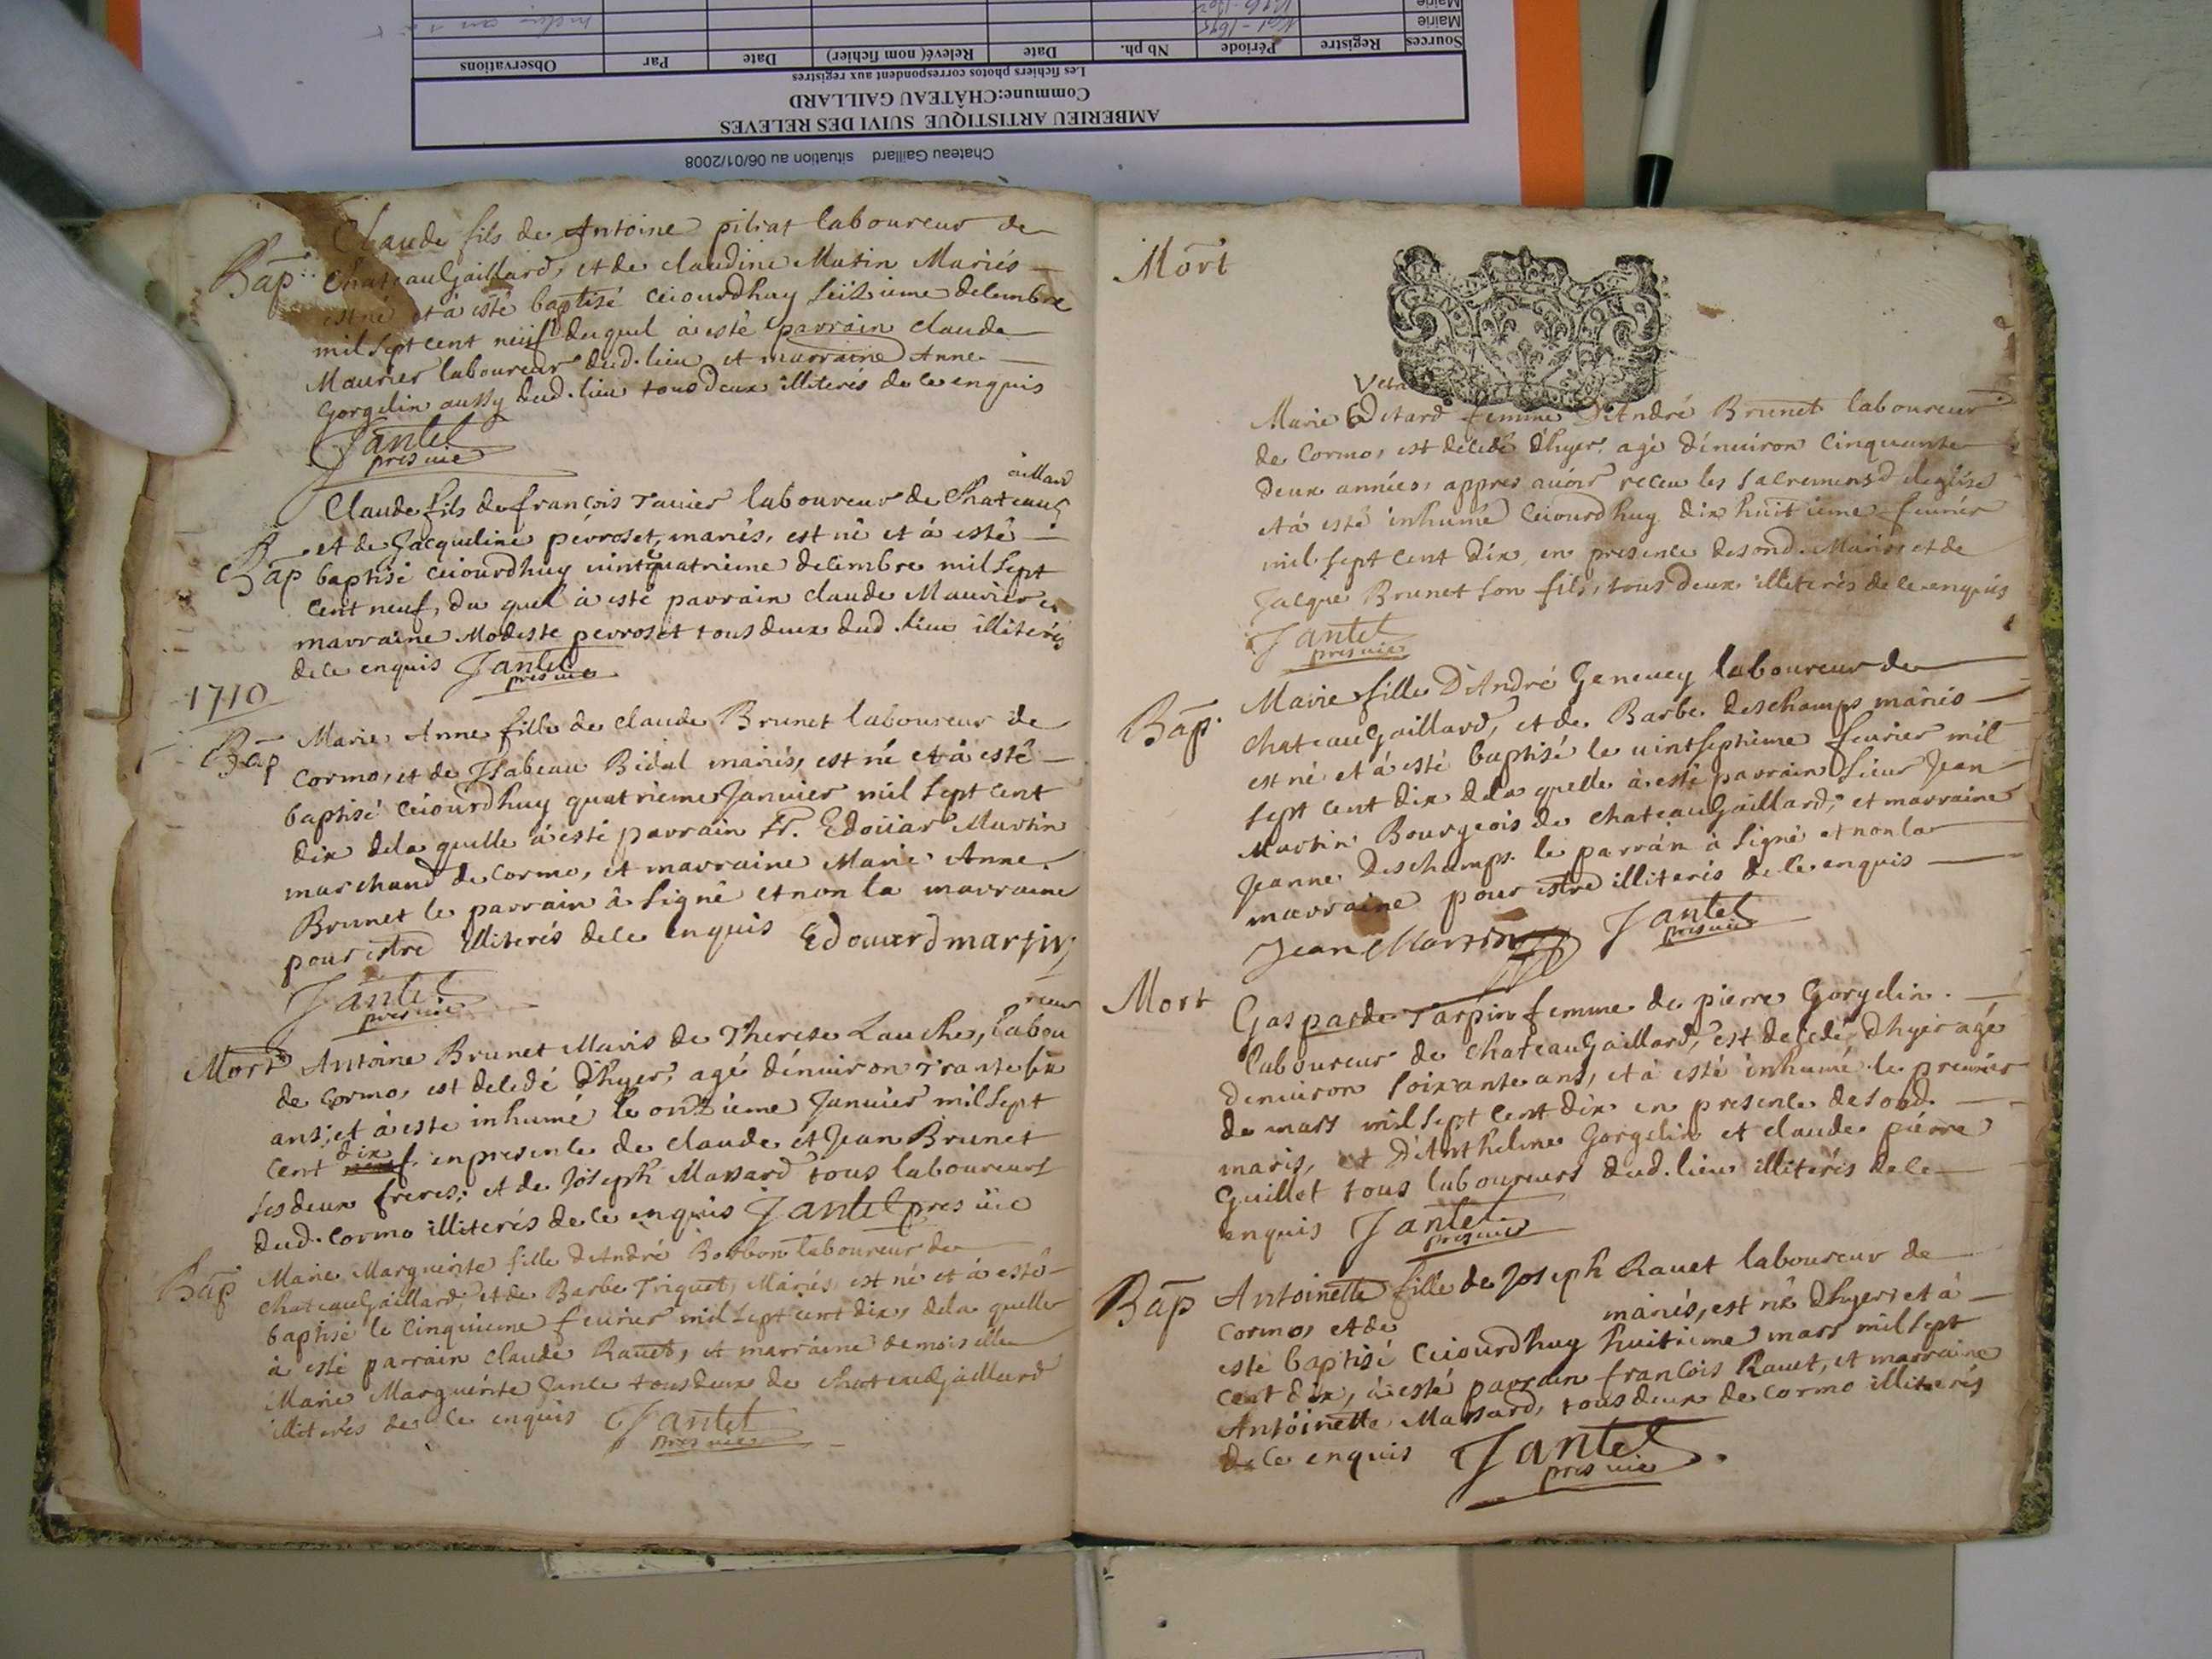 Chateau Gaillard situation au 06/01/2008
AMBERIEU ARTISTIQUE SUIVI DES RELEVES
Commune:CHÂTEAU GAILLARD
Les fichiers photos correspondent aux registres
Sources Registre Période Nb ph. Date Relevé( nom fichier) Date Par Observations
Mairie
Mairie
Claude fils de Antoine piliat laboureur de
Bap: chateauGaillard, et de claudine Mutin Mariés
est né et à esté baptisé ceiourdhuy seizieme decembre
mil sept cent neuf duquel à esté parrain claude
Maurier laboureur dud. lieu et marraine Anne
Gorgelin aussy dud. lieu tous deux illiterés de ce enquis
Jantet
pres vic
aillard
Claude fils de françois Tavier laboureur de ChateauG
et de Jacqueline pérroset, mariés, est né et à esté
Bap baptisé ceiourdhuy vintquatrième decembre mil sept
cent neuf, du quel à esté parrain claude Maurier et
marraine Modeste perroset tous deux dud. lieu illiterés
de ce enquis Jantet
pres vic
1710
Bap Marie Anne fille de claude Brunet laboureur de
Cormo, et de Isabeau Bidal mariés, est né et à esté
baptisé ceiourdhuy quatrieme Janvier mil sept cent
dix dela quelle à esté parrain sr. Edoüar Martin
marchand de cormo, et marraine Marie Anne
Brunet le parrain à signé et non la marraine
pour estre illiterés de ce enquis Edouard martin
Jantet
pres vic
rieur
Mort Antoine Brunet Maris de Therese Lauche, labou
de Cormo, est decedé d'hyer, agé dénuiron trante six
ans; et à este inhumé le onzieme Januier mil sept
dix
cent neuf. en presence de claude et Jean Brunet
ses deux freres; et de Joseph Massard tous laboureurs
dud. Cormo illiterés de ce enquis Jantet pres vic
Bap Marie Marguerite fille d'André Bolbon laboureur de
chateauGaillard, et de Barbe Triquet, Mariés est né et à esté
baptisé le Cinquieme feurier mil sept cent dix, dela quelle
à esté parrain claude Rauet, et marraine demoiselle
Marie Marguerite Jance tous deux de chateauGaillard
illiterés de ce enquis Jantet
pres vic
Mort
Marie Vetard femme D'André Brunet laboureur
de Cormo, est decedé d'hyer, agé dénuiron Cinquante
deux années, appres auoir receu les sacremens d leglise
et à esté inhumé ceiourdhuy dix huitieme feurier
mil sept cent dix, en presence de sond. Maris, et de
Jacque Brunet son fils, tous deux illiterés de ce enquis
Jantet
pres vic
Bap. Marie fille D'André Geneuey laboureur de
chateauGaillard, et de Barbe deschamps mariés
est né et à esté baptisé le vintseptième feurier mil
sept cent dix dela quelle à esté parrain sieur Jean
Martin Bourgeois de chateauGaillard, et marraine
Jeanne deschamps. le parrain à signé et non la
marraine pour estre illiteris de ce enquis
Jean Martin Jantet
pres vic
Mort Gasparde Tarpin femme de pierre Gorgelin.
laboureur de chateauGaillard, est decedé dhyer agé
denuiron soixante ans, et à esté inhumé le premier
de mars mil sept cent dix en presence de sond.
maris, et d'Anthelme Gorgelin et claude piérre
Guillet tous laboureurs dud. lieu illiterés de ce
enquis Jantet
pres vic
Bap Antoinette fille de Joseph Rauet laboureur de
Cormo, et de mariés, est né dhyer, et à
esté baptisé ceiourdhuy huitieme mars mil sept
cent dix, à esté parrain françois Rauet, et marraine
Antoinette Massard, tous deux de cormo illiterés
de ce enquis Jantet
pres vic